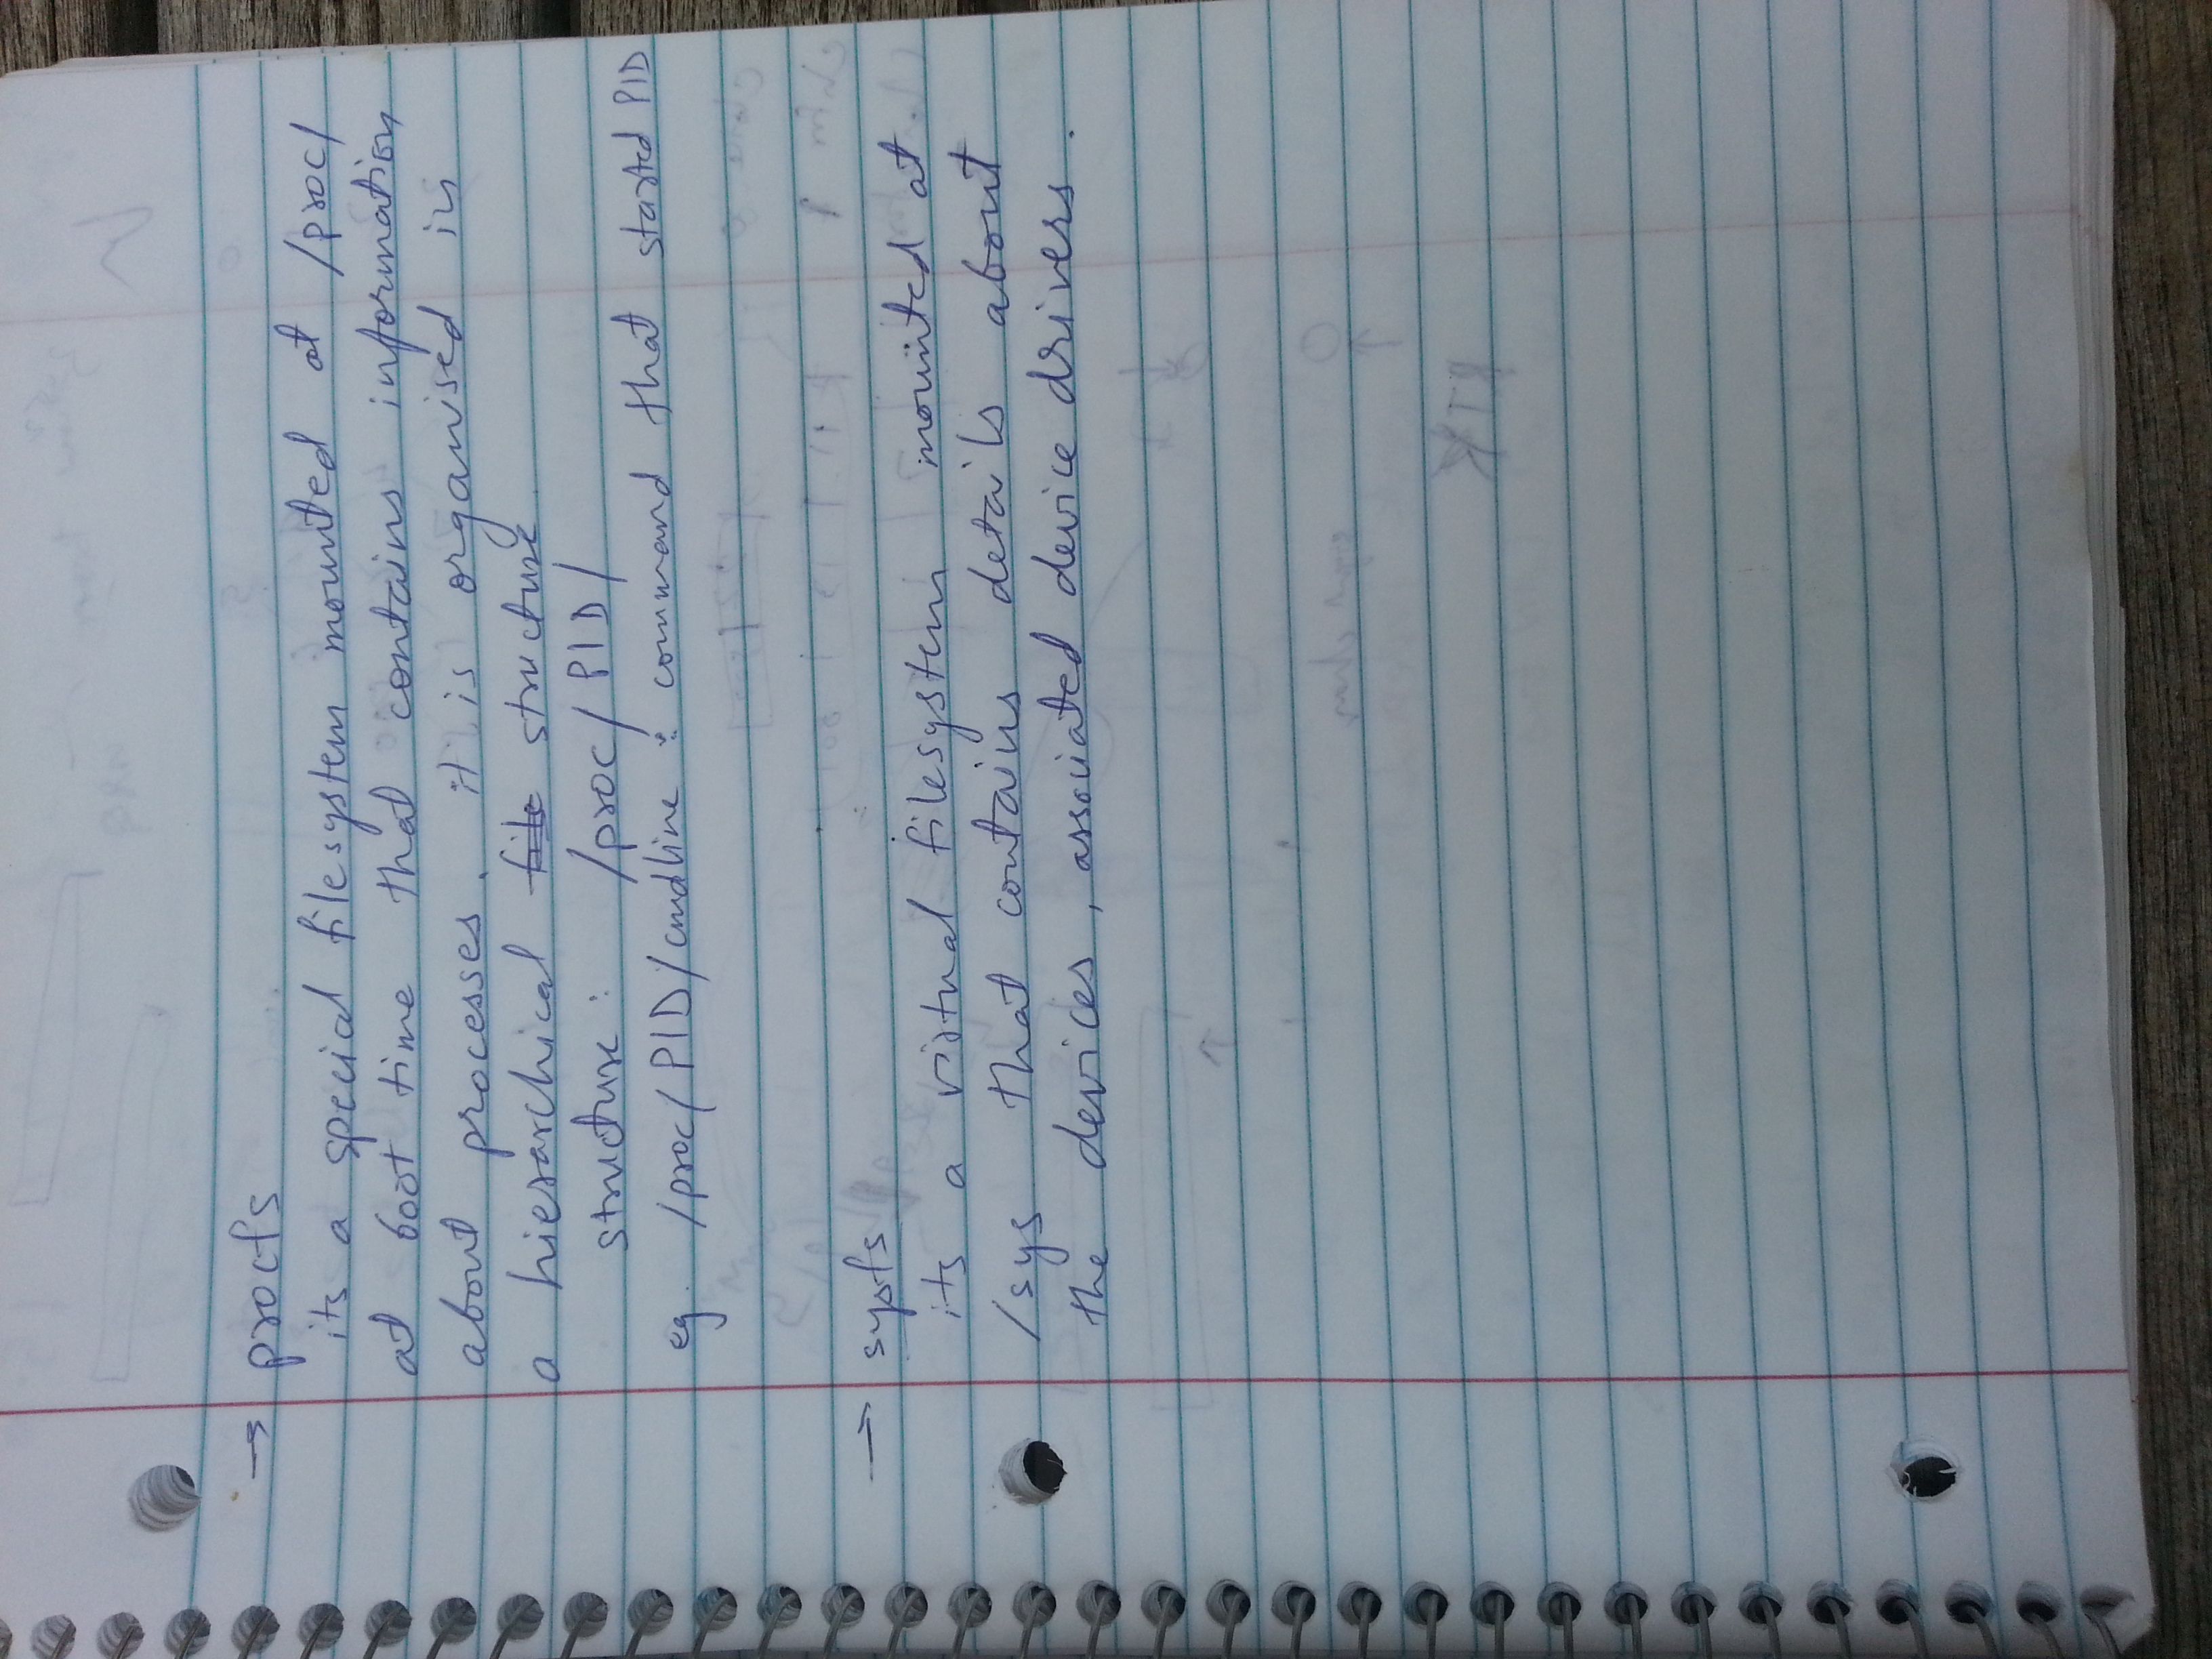 → procfs
its a special filesystem mounted at /proc/
at boot time that contains information
about processes. it is organised in
a hierarchical file structure.
structure: /proc/PID/
eg. /proc/PID/cmdline : command that started PID
→ sysfs
its a virtual filesystem mounted at
/sys that contains details about
the devices, associated device drivers.